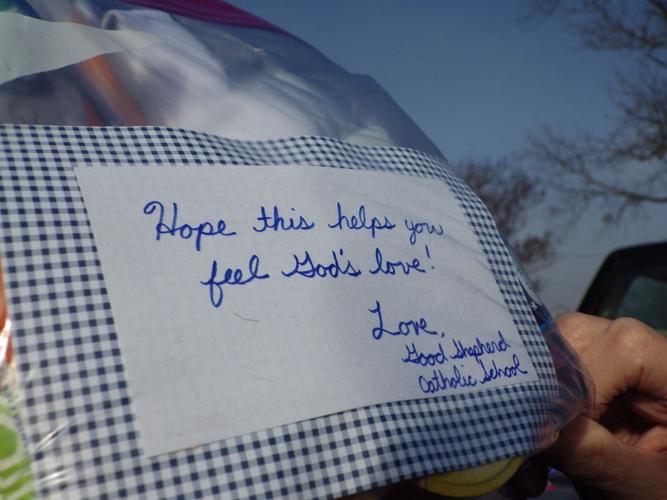 Hope this helps you
feel God's love!
Love,
Good Shepherd
Catholic School